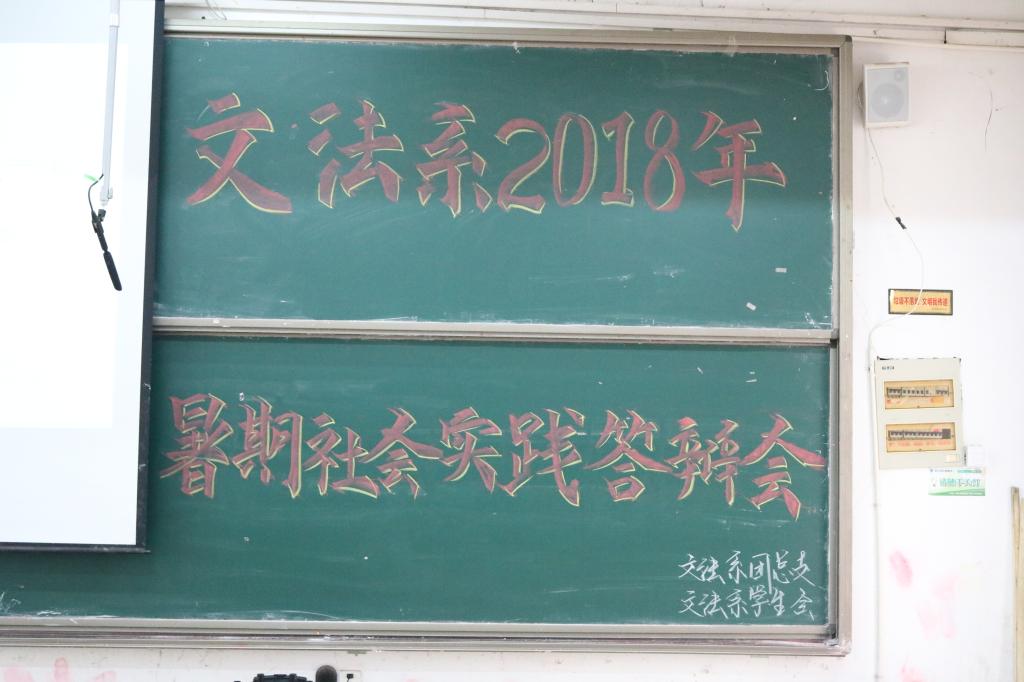 文法系2018年
暑期社会实践答辩会
文法系团总支
文法系学生会